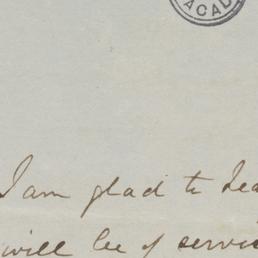 ACAD
I am glad to hea
will be of servi